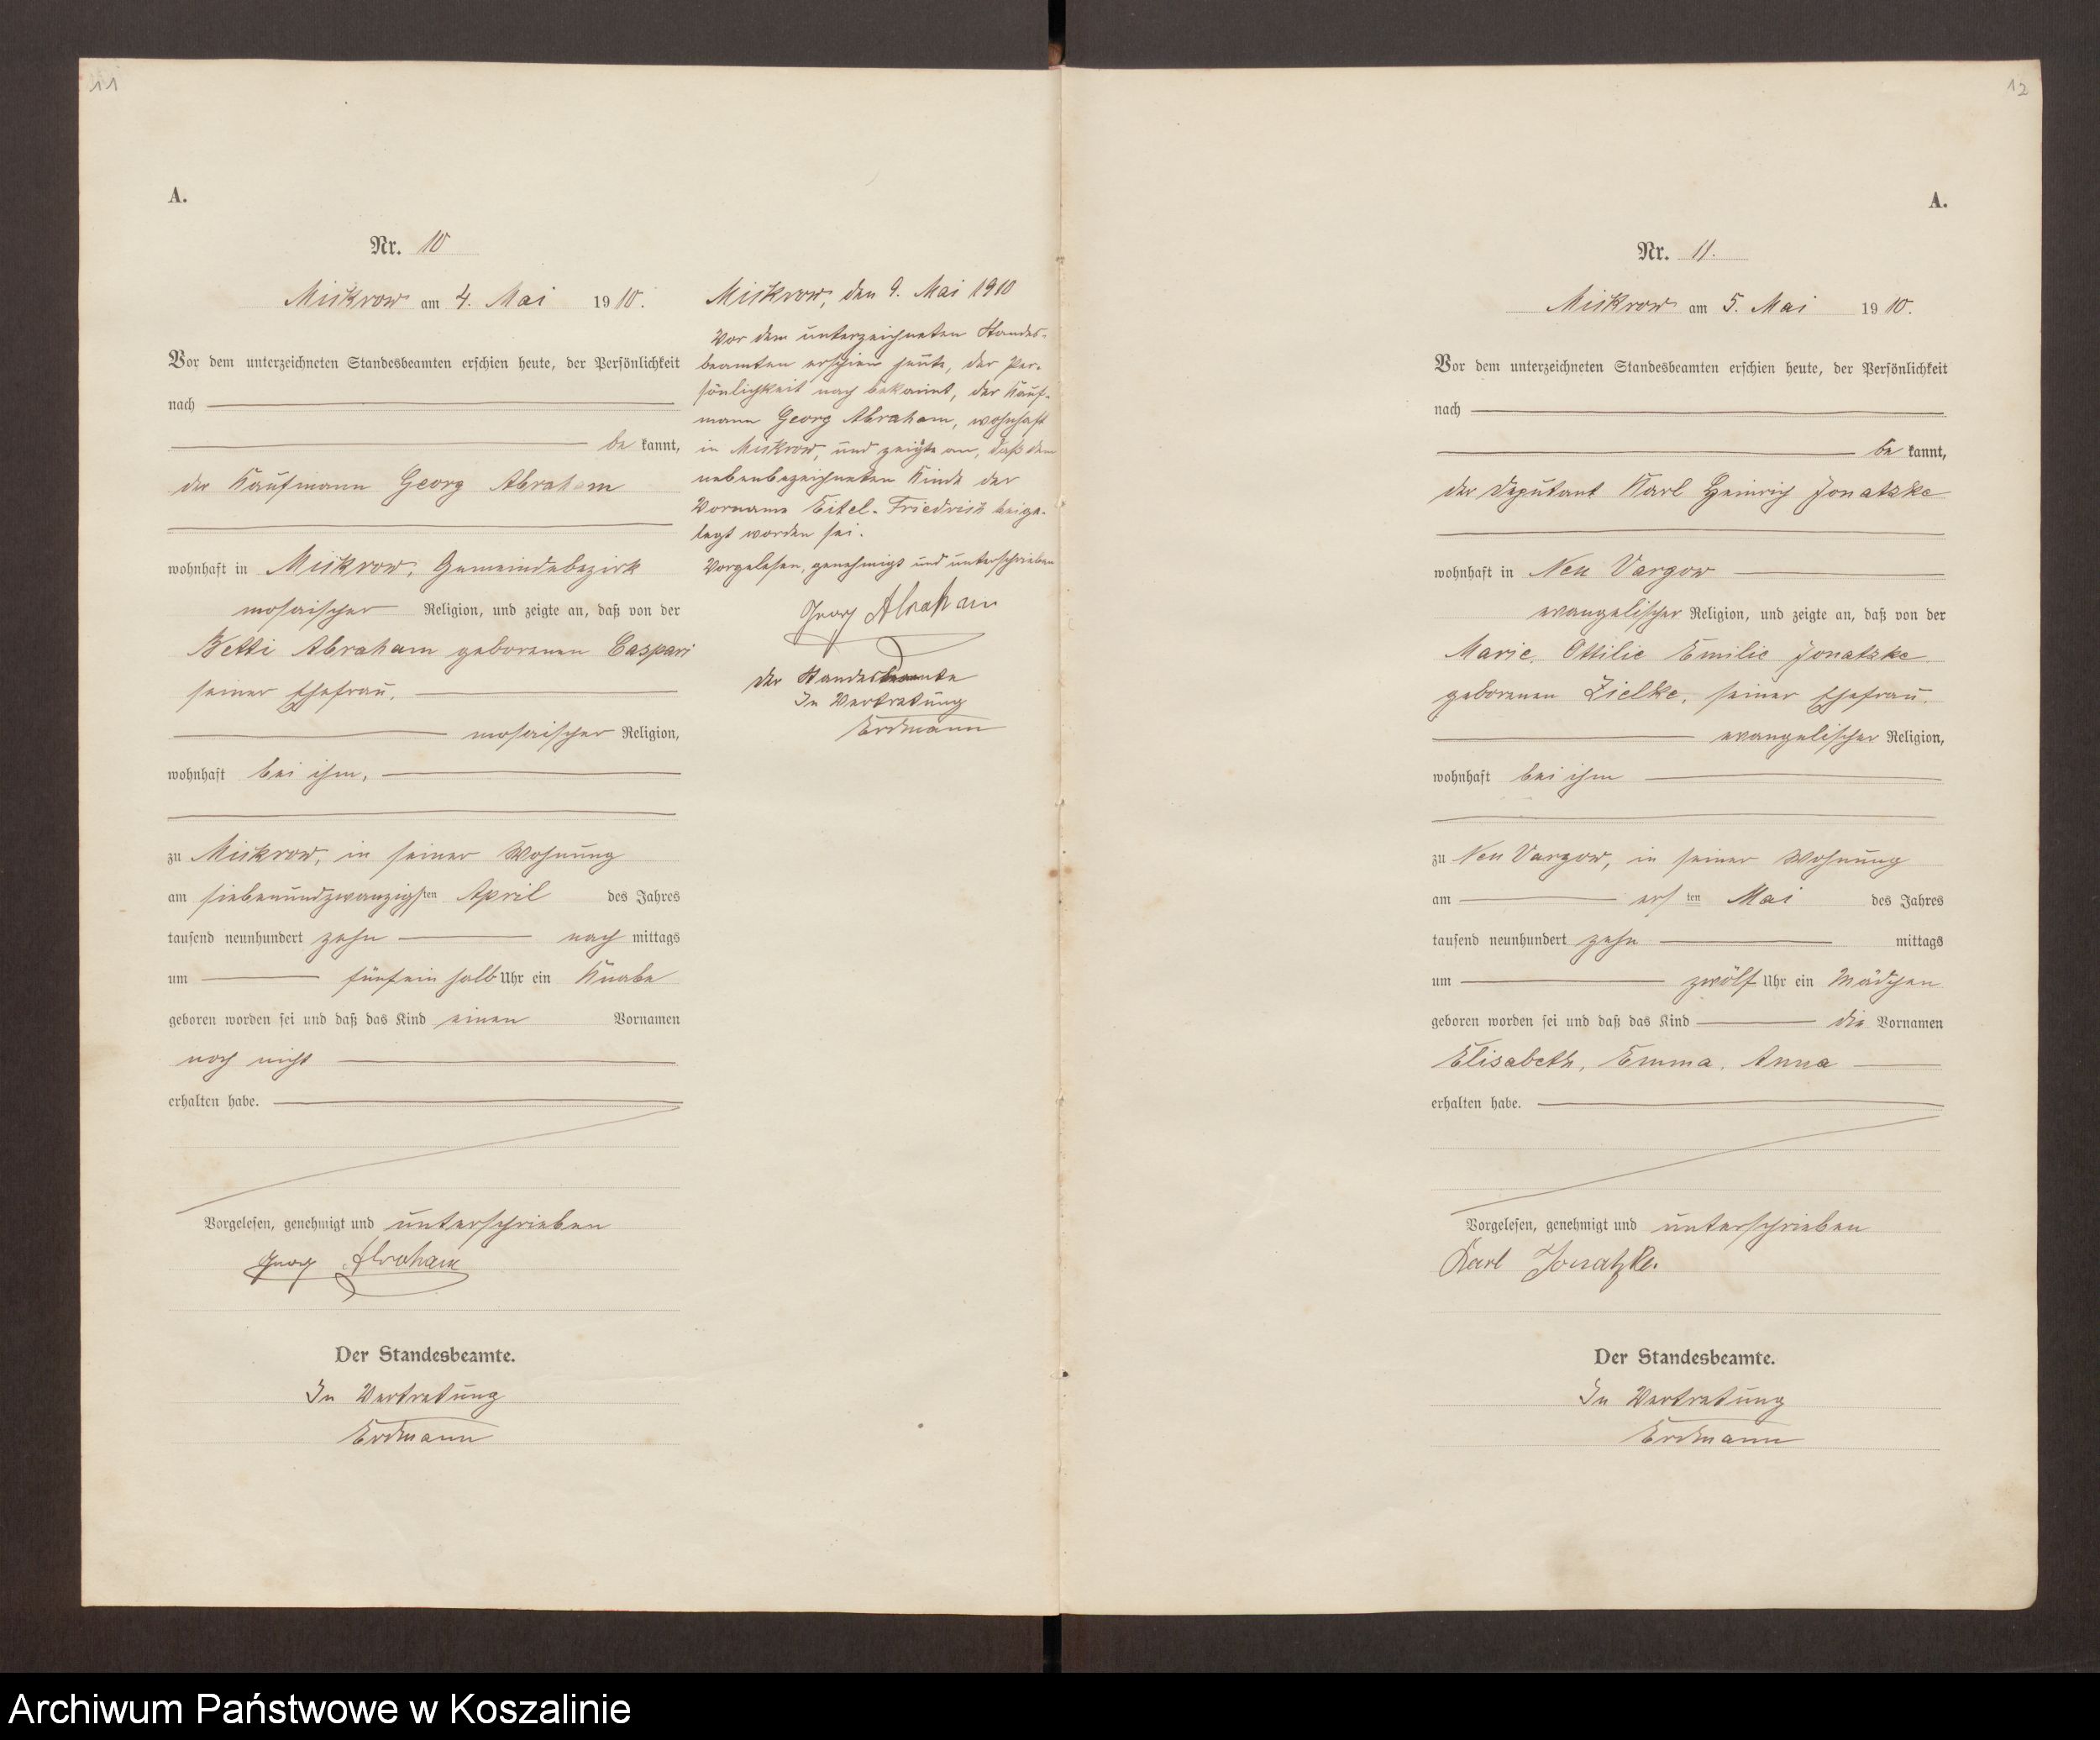 11
A.
Nr. 10
Mickrow am 4. Mai 1910.
Vor dem unterzeichneten Standesbeamten erschien heute, der Persönlichkeit
nach
be kannt,
der Kaufmann Georg Abraham
wohnhaft in Mickrow, Gemeindebezirk
mosaischer Religion, und zeigte an, daß von der
Betti Abraham geborenen Caspari
seiner Ehefrau,
mosaischer Religion,
wohnhaft bei ihm,
zu Mickrow, in seiner Wohnung
am siebenundzwanzigsten April des Jahres
tausend neunhundert zehn nach mittags
um fünfeinhalb Uhr ein Knabe
geboren worden sei und daß das Kind einen Vornamen
noch nicht
erhalten habe.
Vorgelesen, genehmigt und unterschrieben
Georg Abraham
Der Standesbeamte.
In Vertretung
Erdmann
Mickrow, den 9. Mai 1910
Vor dem unterzeichneten Standes-
beamten erschien heute, der Per-
sönlichkeit nach bekannt, der Kauf-
mann Georg Abraham, wohnhaft
in Mickrow, und zeigte an, daß dem
nebenbezeichneten Kinde der
Vorname Eitel-Friedrich beige-
legt worden sei.
Vorgelesen, genehmigt und unterschrieben
Georg Abraham
Der Standesbeamte
In Vertretung
Erdmann
12
A.
Nr. 11.
Mickrow am 5. Mai 1910.
Vor dem unterzeichneten Standesbeamten erschien heute, der Persönlichkeit
nach
be kannt,
der Deputant Karl Heinrich Jonatzke
wohnhaft in Neu Vargow
evangelischer Religion, und zeigte an, daß von der
Marie, Ottilie Emilie Jonatzke
geborenen Zielke, seiner Ehefrau,
evangelischer Religion,
wohnhaft bei ihm
zu Neu Vargow, in seiner Wohnung
am ersten Mai des Jahres
tausend neunhundert zehn mittags
um zwölf Uhr ein Mädchen
geboren worden sei und daß das Kind die Vornamen
Elisabeth, Emma, Anna
erhalten habe.
Vorgelesen, genehmigt und unterschrieben
Karl Jonatzke.
Der Standesbeamte.
In Vertretung
Erdmann
Archiwum Państwowe w Koszalinie